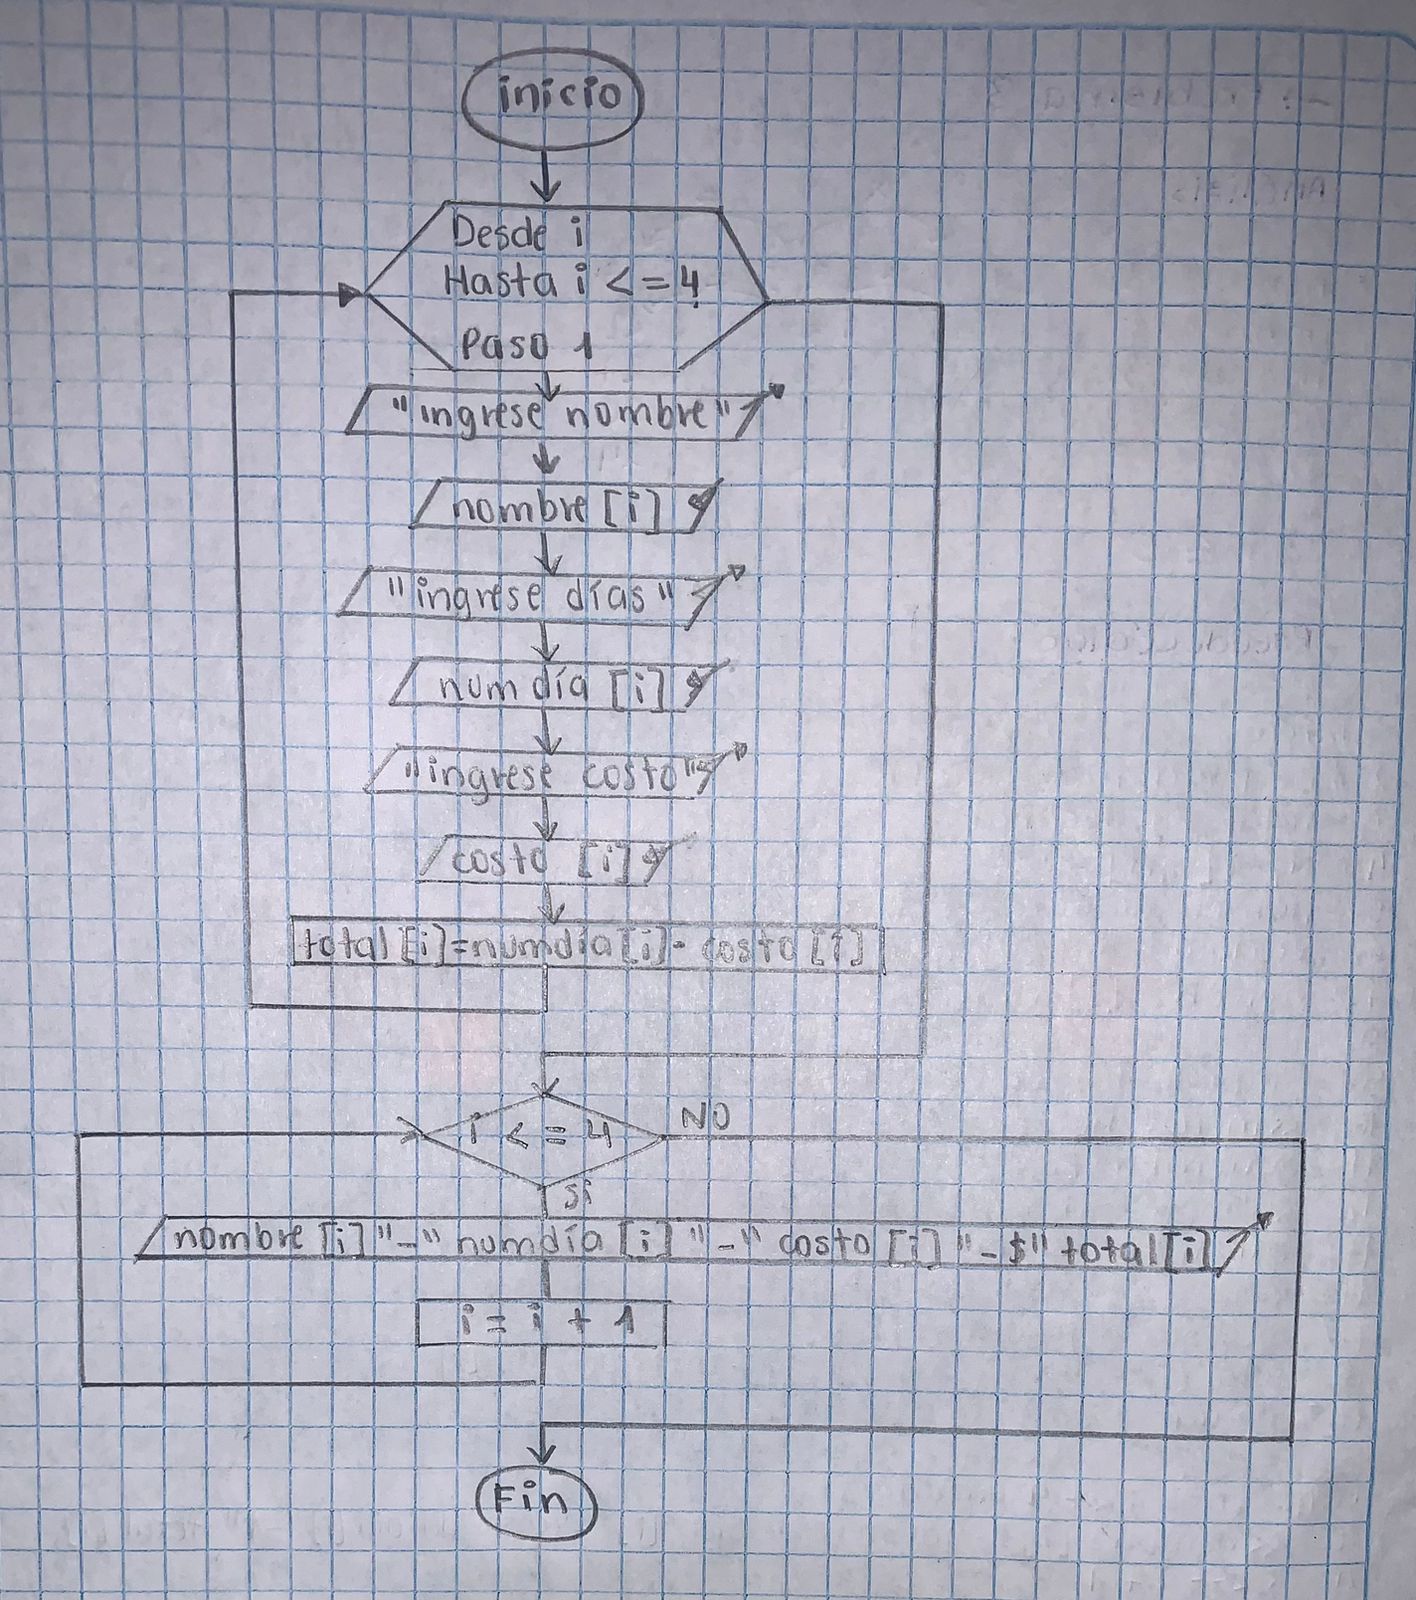 inicio
Desde i
Hasta i <= 4
Paso 1
"ingrese nombre"
nombre [i]
"ingrese días"
numdía [i]
"ingrese costo"
costo [i]
total [i]=numdía[i]· costo[i]
i <= 4
NO
si
nombre [i] "-" numdía [i] "-" costo [i] "-$" total[i]
i = i + 1
Fin